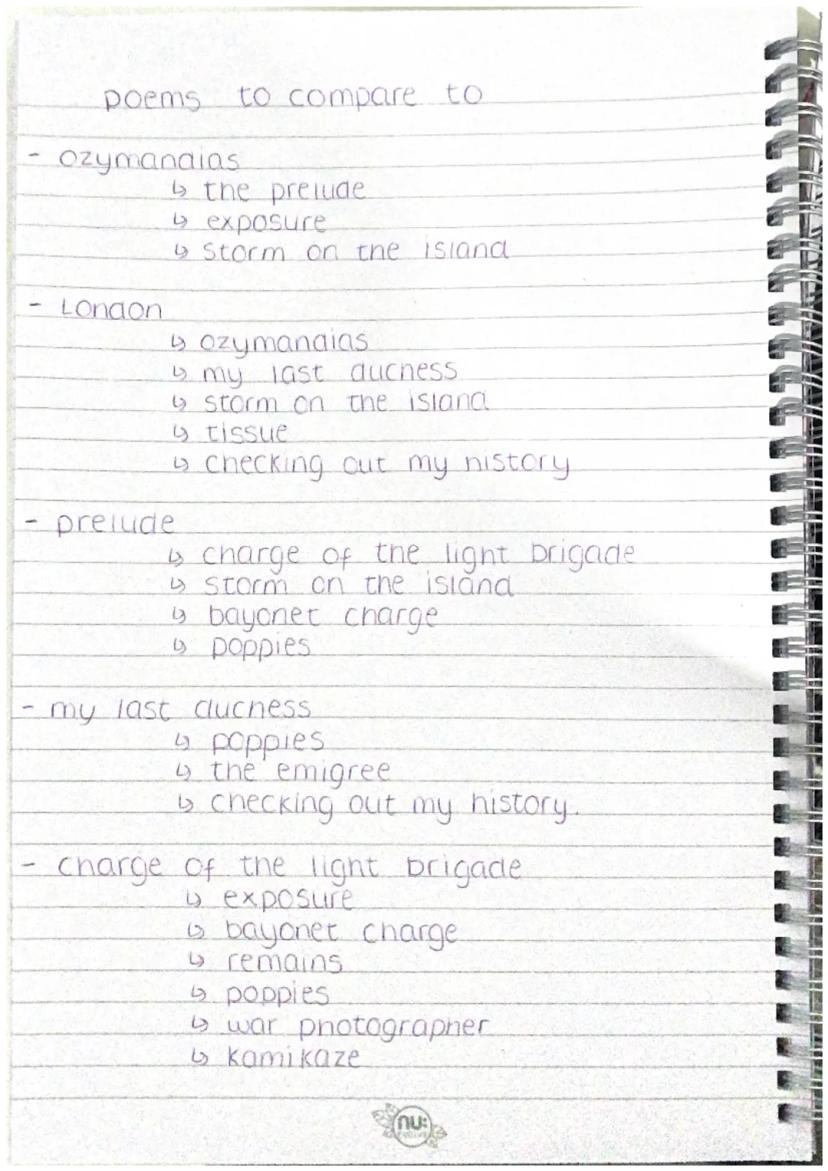 poems to compare to
- ozymandias
↳ the prelude
↳ exposure
↳ storm on the island
- London
↳ ozymandias
↳ my last duchess
↳ storm on the island
↳ tissue
↳ checking out my history
- prelude
↳ charge of the light brigade
↳ storm on the island
↳ bayonet charge
↳ poppies
- my last duchess
↳ poppies
↳ the emigree
↳ checking out my history.
- charge of the light brigade
↳ exposure
↳ bayonet charge
↳ remains
↳ poppies
↳ war photographer
↳ kamikaze
nu: